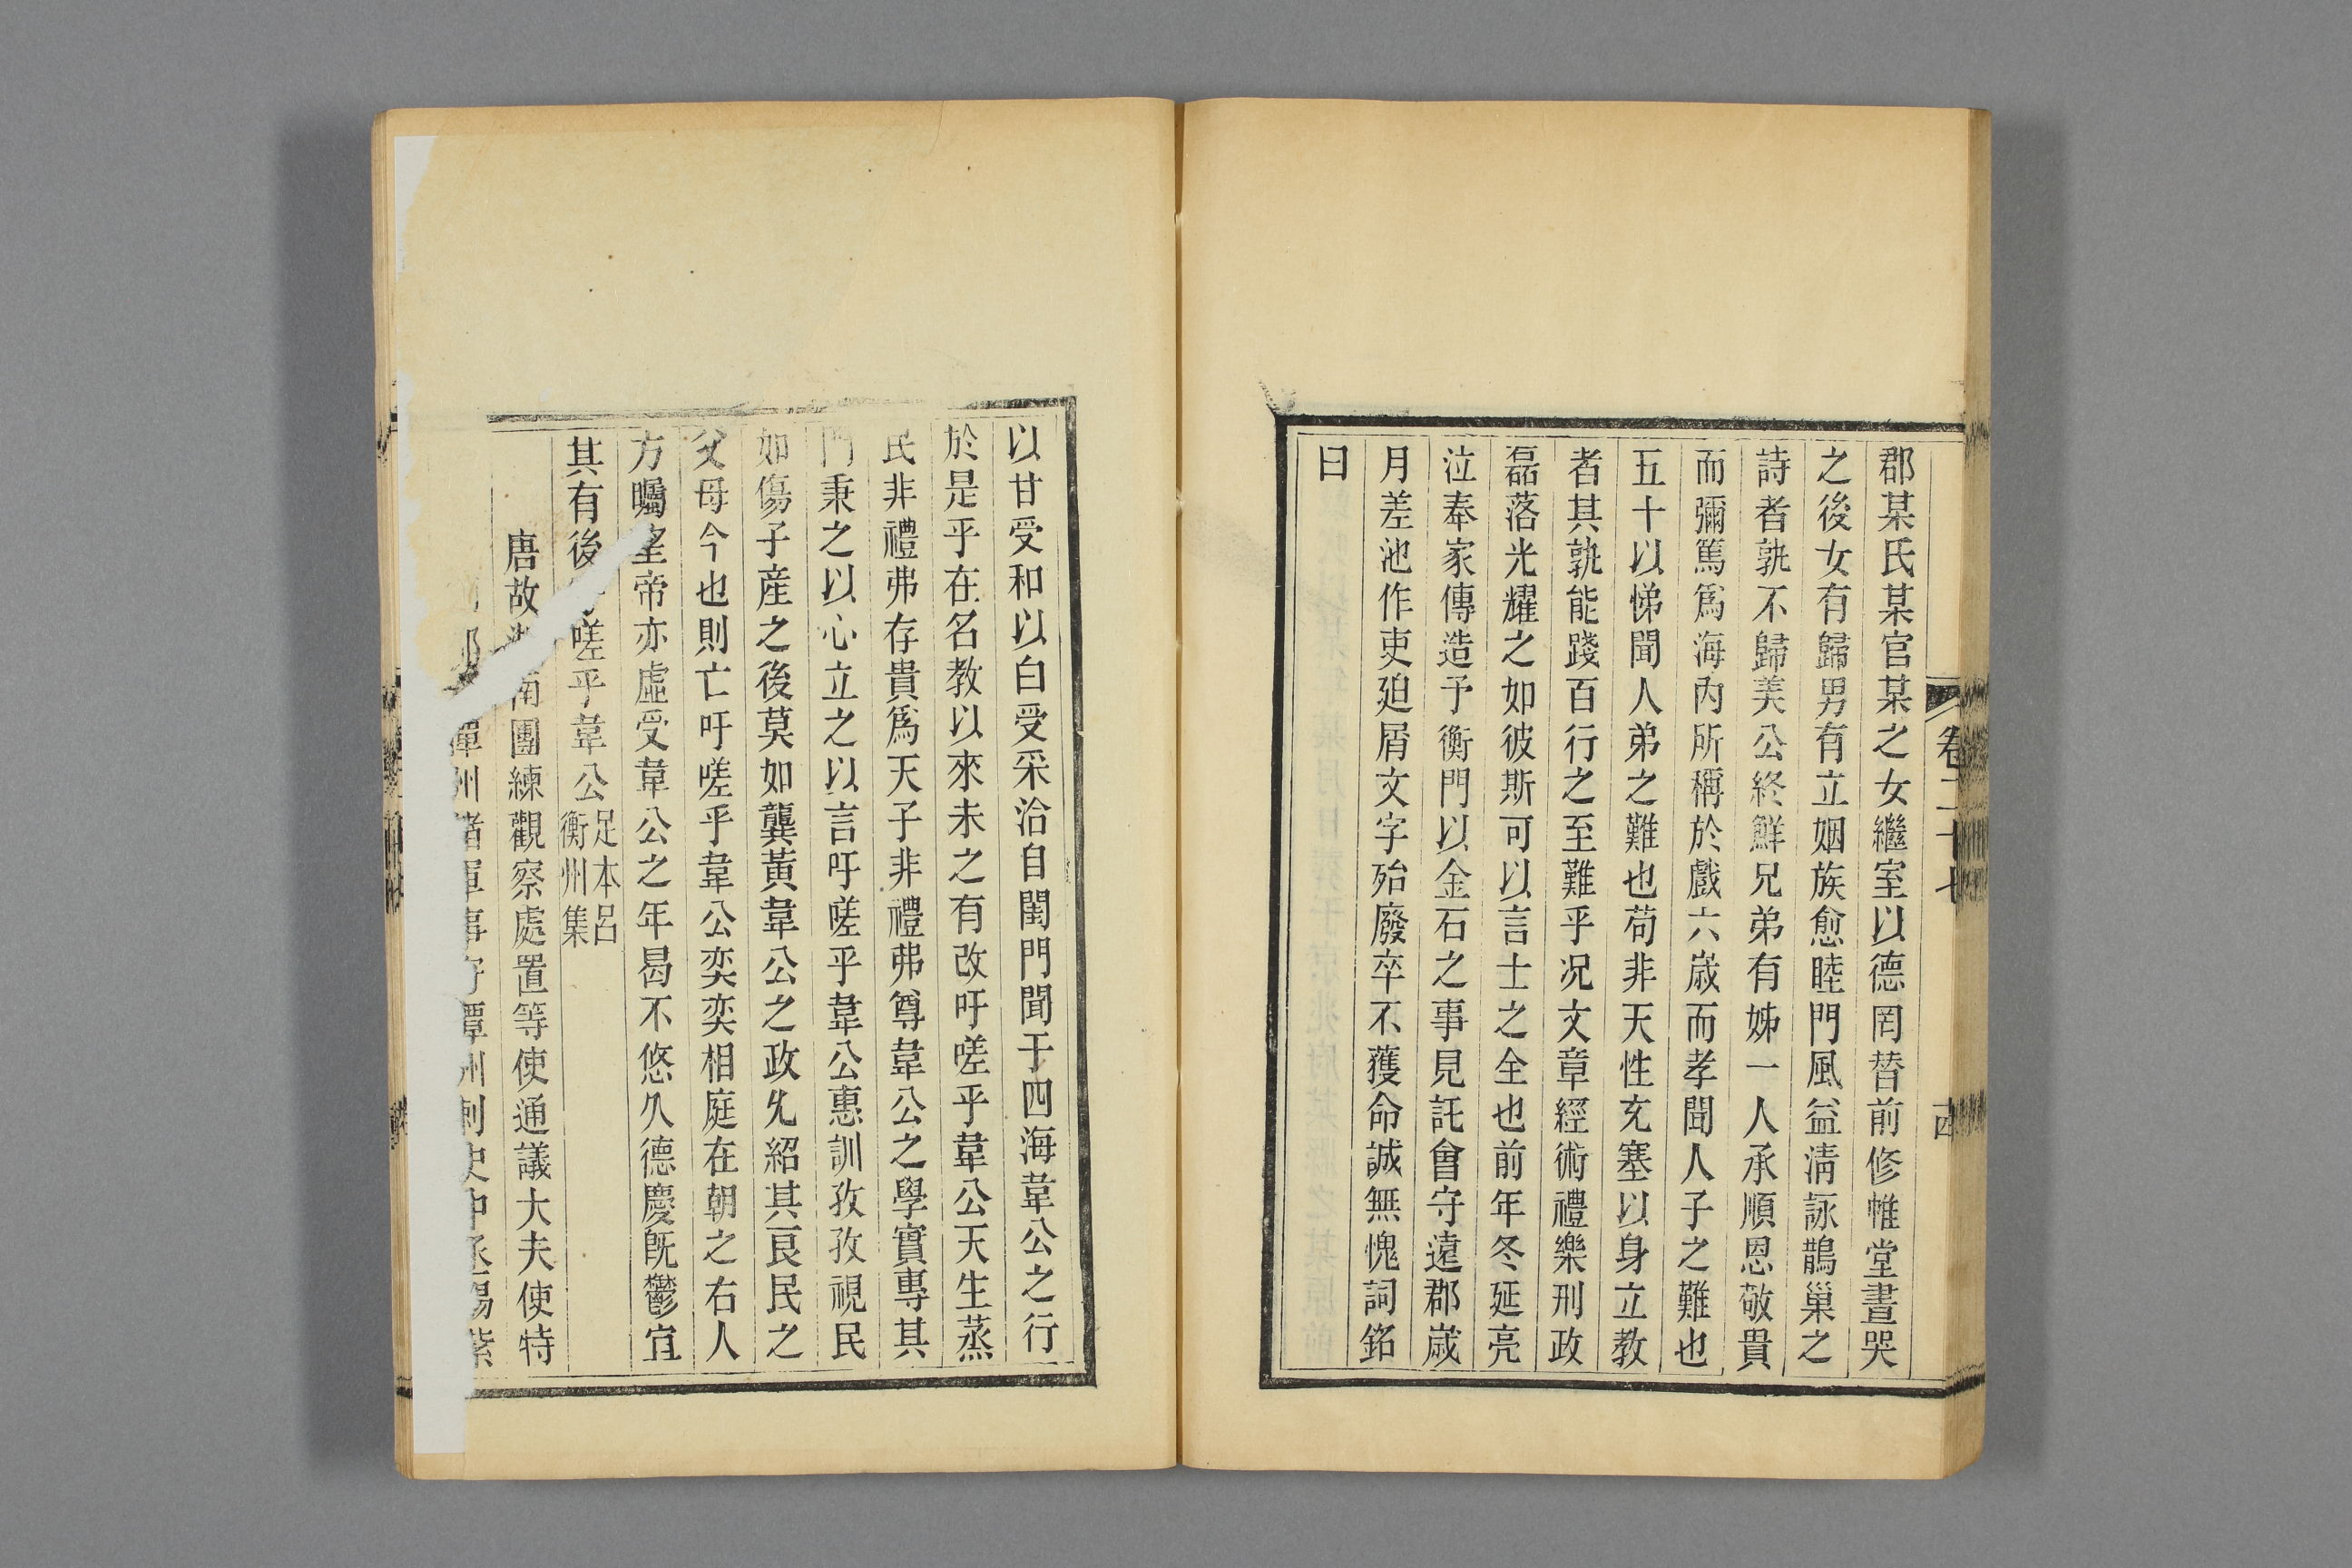 郡某氏某官某之女繼室以德罔替前修帷堂晝哭
之後女有歸男有立姻族愈睦門風益清詠鵲巢之
詩者孰不歸美公終鮮兄弟有姊一人承順恩敬貴
而彌篤爲海內所稱於戲六歲而孝聞人子之難也
五十以悌聞人弟之難也苟非天性充塞以身立教
者其孰能踐百行之至難乎况文章經術禮樂刑政
磊落光耀之如彼斯可以言士之全也前年冬延亮
泣奉家傳造予衡門以金石之事見託會守遠郡歲
月差池作吏廹屑文字殆廢卒不獲命誠無愧詞銘
曰
卷二十七
以甘受和以白受采洽自閨門聞于四海韋公之行
於是乎在名教以來未之有改吁嗟乎韋公天生蒸
民非禮弗存貴爲天子非禮弗尊韋公之學實專其
門秉之以心立之以言吁嗟乎韋公惠訓孜孜視民
如傷子産之後莫如龔黃韋公之政允紹其良民之
父母今也則亡吁嗟乎韋公奕奕相庭在朝之右人
方矚望帝亦虛受韋公之年曷不悠久德慶旣鬱宜
其有後嗟乎韋公足本呂衡州集
唐故南團練觀察處置等使通議大夫使特
州諸軍事守潭州刺史中丞賜紫